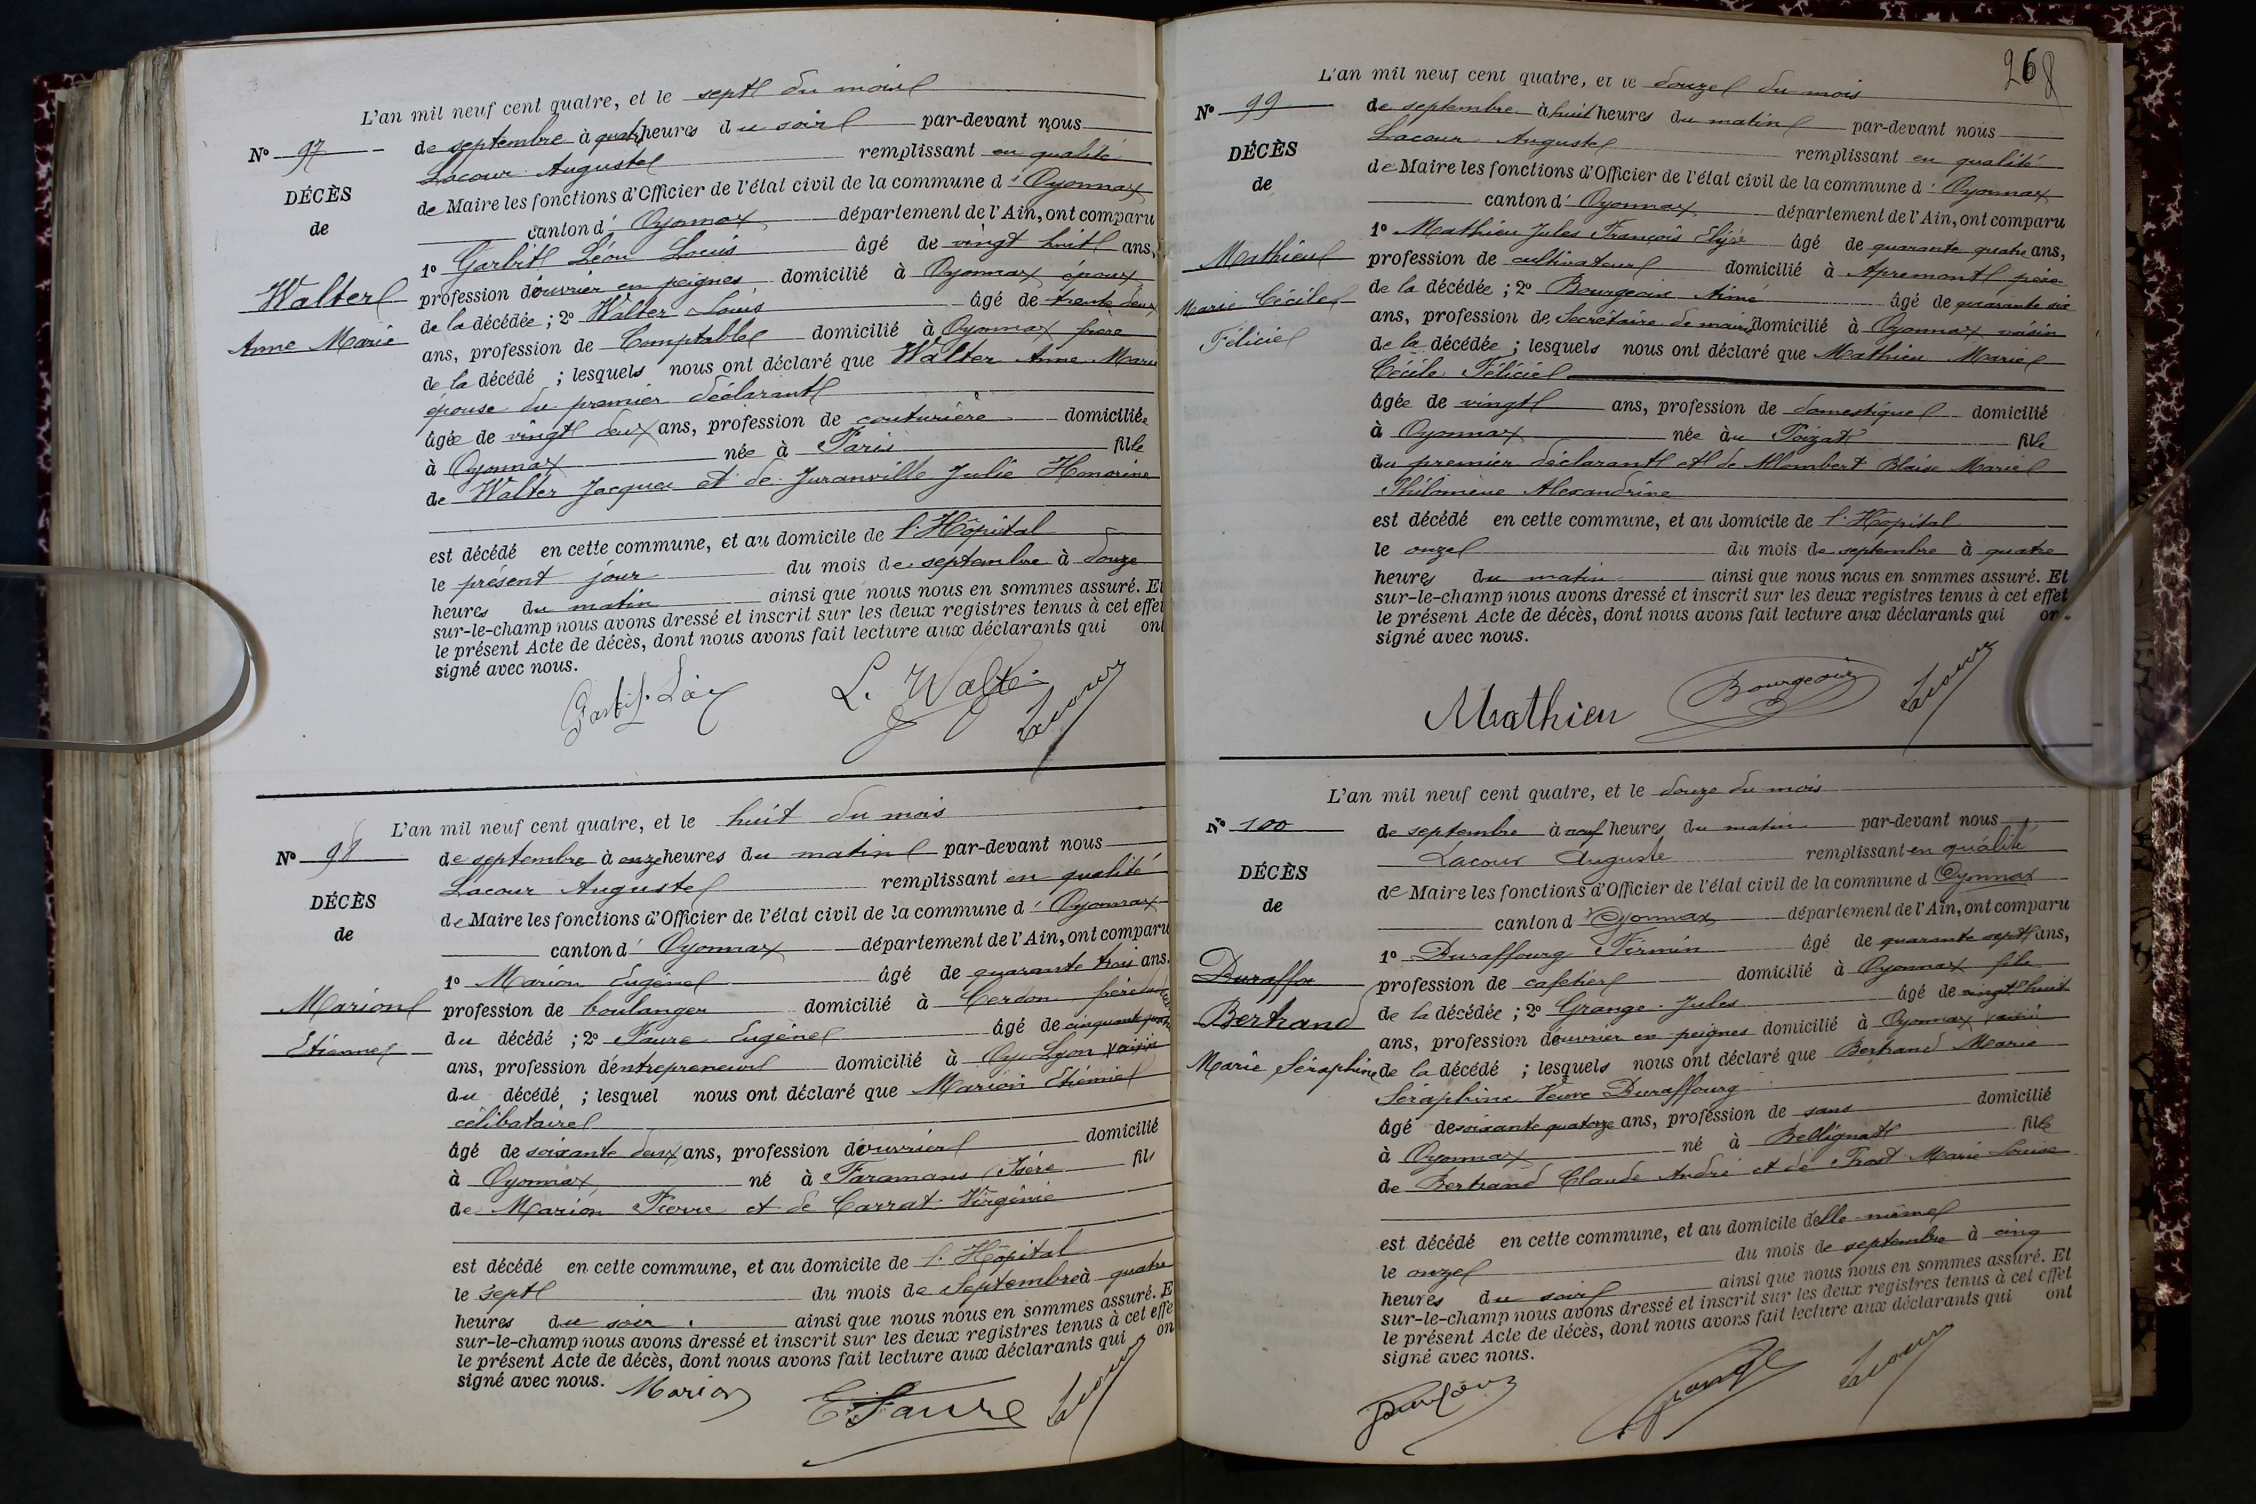 L'an mil neuf cent quatre, et le sept du mois
No 97
de septembre à quatre heures du soir par-devant nous
Lacour Auguste remplissant en qualité
DÉCÈS
de Maire les fonctions d'Officier de l'état civil de la commune d'Oyonnax
de
canton d'Oyonnax département de l'Ain, ont comparu
1o Garbit Léon Louis âgé de vingt huit ans,
Walter
Anne Marie
profession d'ouvrier en peignes domicilié à Oyonnax époux
de la décédée ; 2o Walter Louis âgé de trente deux
ans, profession de Comptable domicilié à Oyonnax frère
de la décédé ; lesquels nous ont déclaré que Walter Anne Marie
épouse du premier déclarant
âgée de vingt deux ans, profession de couturière domiciliée
à Oyonnax née à Paris fille
de Walter Jacques et de Juranville Julie Honorine
est décédé en cette commune, et au domicile de l'Hôpital
le présent jour du mois de septembre à douze
heures du matin ainsi que nous nous en sommes assuré. Et
sur-le-champ nous avons dressé et inscrit sur les deux registres tenus à cet effet
le présent Acte de décès, dont nous avons fait lecture aux déclarants qui ont
signé avec nous.
L. Walter
Lacour
L'an mil neuf cent quatre, et le huit du mois
No 98
de septembre à onze heures du matin par-devant nous
Lacour Auguste remplissant en qualité
DÉCÈS
de Maire les fonctions d'Officier de l'état civil de la commune d'Oyonnax
de
canton d'Oyonnax département de l'Ain, ont comparu
1o Marion Eugène âgé de quarante trois ans.
Marion
Etienne
profession de boulanger domicilié à Cerdon frère
du décédé ; 2o Faure Eugène âgé de cinquante
ans, profession d'entrepreneur domicilié à Oy Lyon voisin
du décédé ; lesquel nous ont déclaré que Marion Etienne
célibataire
âgé de soixante deux ans, profession d'ouvrier domicilié
à Oyonnax né à Faramans (Isère fils
de Marion Pierre et de Carrat Virginie
est décédé en cette commune, et au domicile de l'Hôpital
le sept du mois de Septembre à quatre
heures du soir ainsi que nous nous en sommes assuré. E
sur-le-champ nous avons dressé et inscrit sur les deux registres tenus à cet effe
le présent Acte de décès, dont nous avons fait lecture aux déclarants qui on
signé avec nous.
Marion
E. Faure
Lacour
268
L'an mil neuf cent quatre, et le douze du mois
No 99
de septembre à huit heures du matin par-devant nous
Lacour Auguste remplissant en qualité
DÉCÈS
de Maire les fonctions d'Officier de l'état civil de la commune d'Oyonnax
de
canton d'Oyonnax département de l'Ain, ont comparu
1o Mathieu Jules François Elisée âgé de quarante quatre ans,
Mathieu
Marie Cécile
Félicie
profession de cultivateur domicilié à Apremont père
de la décédée ; 2o Bourgeois Aimé âgé de quarante six
ans, profession de Secrétaire de mairie domicilié à Oyonnax voisin
de la décédée ; lesquels nous ont déclaré que Mathieu Marie
Cécile Félicie
âgée de vingt ans, profession de domestique domicilié
à Oyonnax née au Poizat fille
du premier déclarant et de Blaise Marie
Philomène Alexandrine
est décédé en cette commune, et au domicile de l'Hôpital
le onze du mois de septembre à quatre
heures du matin ainsi que nous nous en sommes assuré. Et
sur-le-champ nous avons dressé et inscrit sur les deux registres tenus à cet effet
le présent Acte de décès, dont nous avons fait lecture aux déclarants qui on
signé avec nous.
Mathieu
Bourgeois
Lacour
L'an mil neuf cent quatre, et le douze du mois
No 100
de septembre à neuf heures du matin par-devant nous
Lacour Auguste remplissant en qualité
DÉCÈS
de Maire les fonctions d'Officier de l'état civil de la commune d Oyonnax
de
canton d'Oyonnax département de l'Ain, ont comparu
1o Duraffourg Firmin âgé de quarante sept ans,
Duraffou
Bertrand
Marie Séraphine
profession de cafetier domicilié à Oyonnax fils
de la décédée ; 2o Grange Jules âgé de vingt huit
ans, profession d'ouvrier en peignes domicilié à Oyonnax voisin
de la décédé ; lesquels nous ont déclaré que Bertrand Marie
Séraphine Veuve Duraffourg
âgé de soixante quatorze ans, profession de sans domicilié
à Oyonnax né à Bellignat fille
de Bertrand Claude André et de Prost Marie Louise
est décédé en cette commune, et au domicile d'elle-même
le onze du mois de septembre à cinq
heures du soir ainsi que nous nous en sommes assuré. Et
sur-le-champ nous avons dressé et inscrit sur les deux registres tenus à cet effet
le présent Acte de décès, dont nous avons fait lecture aux déclarants qui ont
signé avec nous.
Grange
Lacour